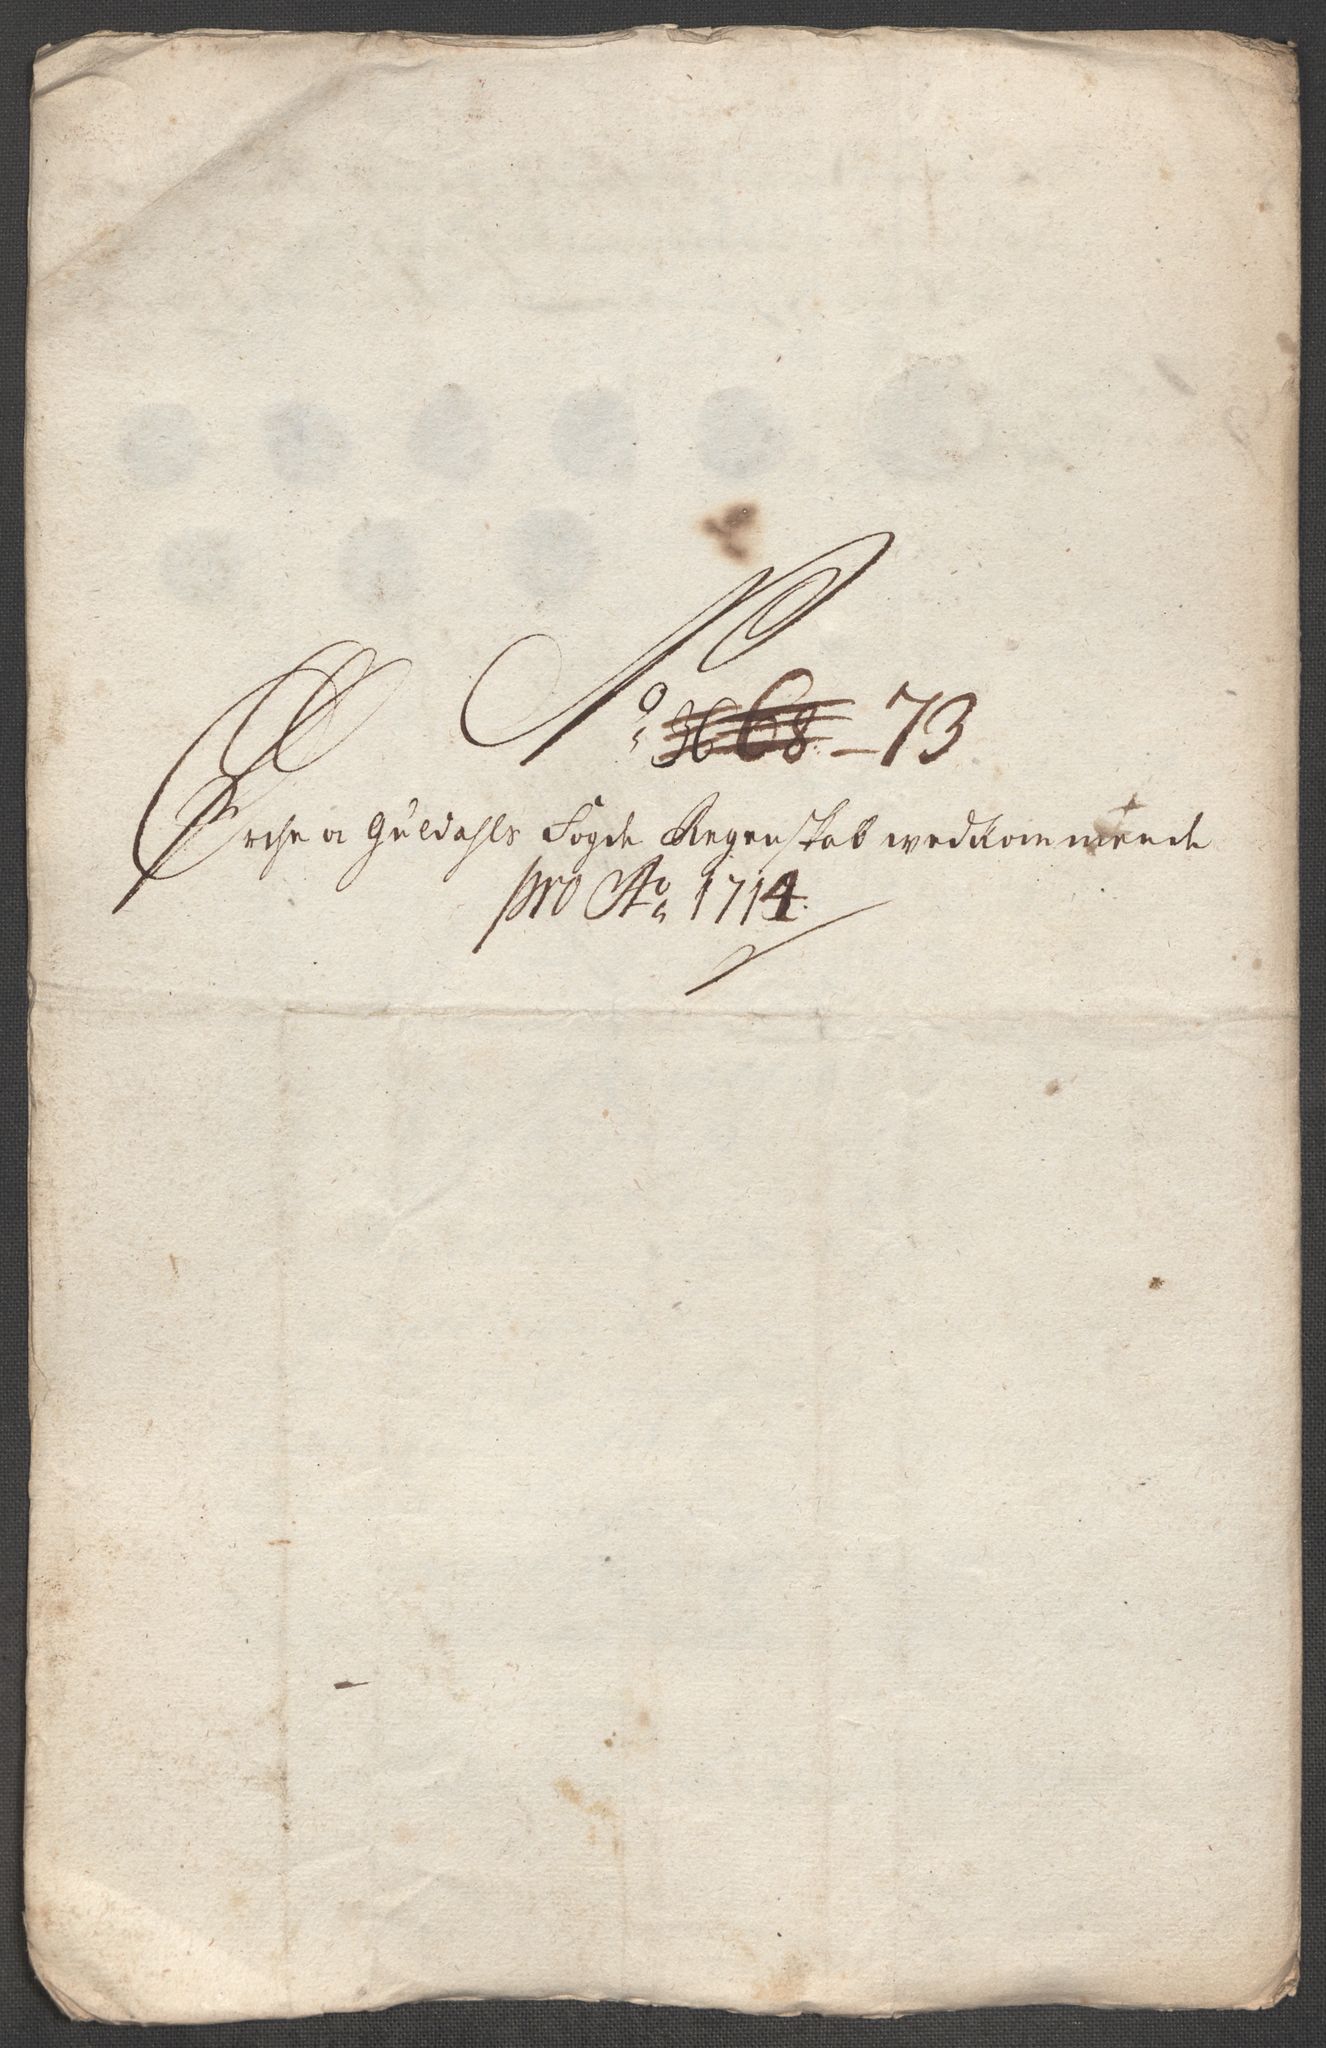 No 36 68. – 73
Ørche o Guldahls Fogde Regenskab wedkommende
pro Ao 1714.